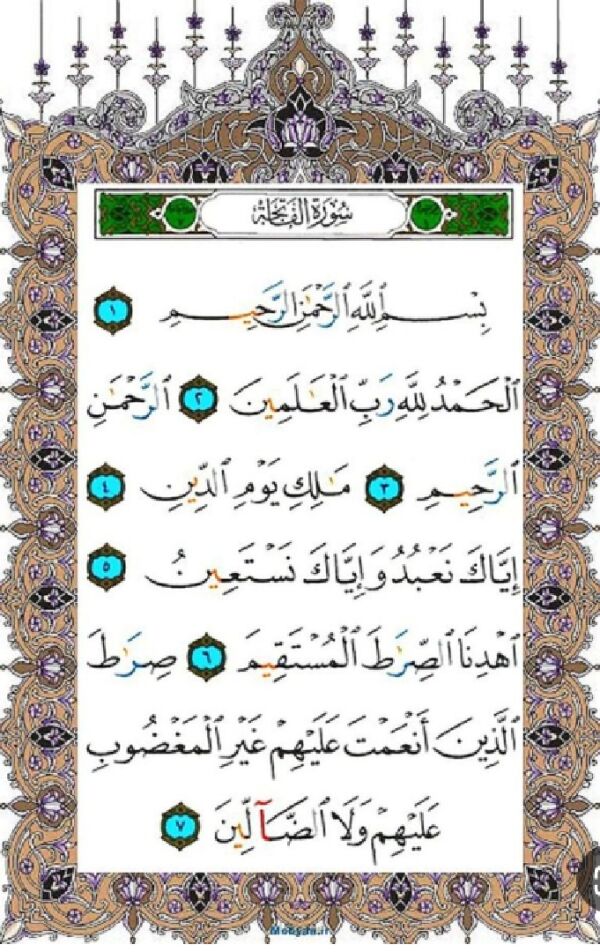 سُورَةُ الفَاتِحَة
بِسْمِ ٱللَّهِ ٱلرَّحْمَٰنِ ٱلرَّحِيمِ ١
ٱلْحَمْدُ لِلَّهِ رَبِّ ٱلْعَٰلَمِينَ ٢ ٱلرَّحْمَٰنِ
ٱلرَّحِيمِ ٣ مَٰلِكِ يَوْمِ ٱلدِّينِ ٤
إِيَّاكَ نَعْبُدُ وَإِيَّاكَ نَسْتَعِينُ ٥
ٱهْدِنَا ٱلصِّرَٰطَ ٱلْمُسْتَقِيمَ ٦ صِرَٰطَ
ٱلَّذِينَ أَنْعَمْتَ عَلَيْهِمْ غَيْرِ ٱلْمَغْضُوبِ
عَلَيْهِمْ وَلَا ٱلضَّآلِّينَ ٧